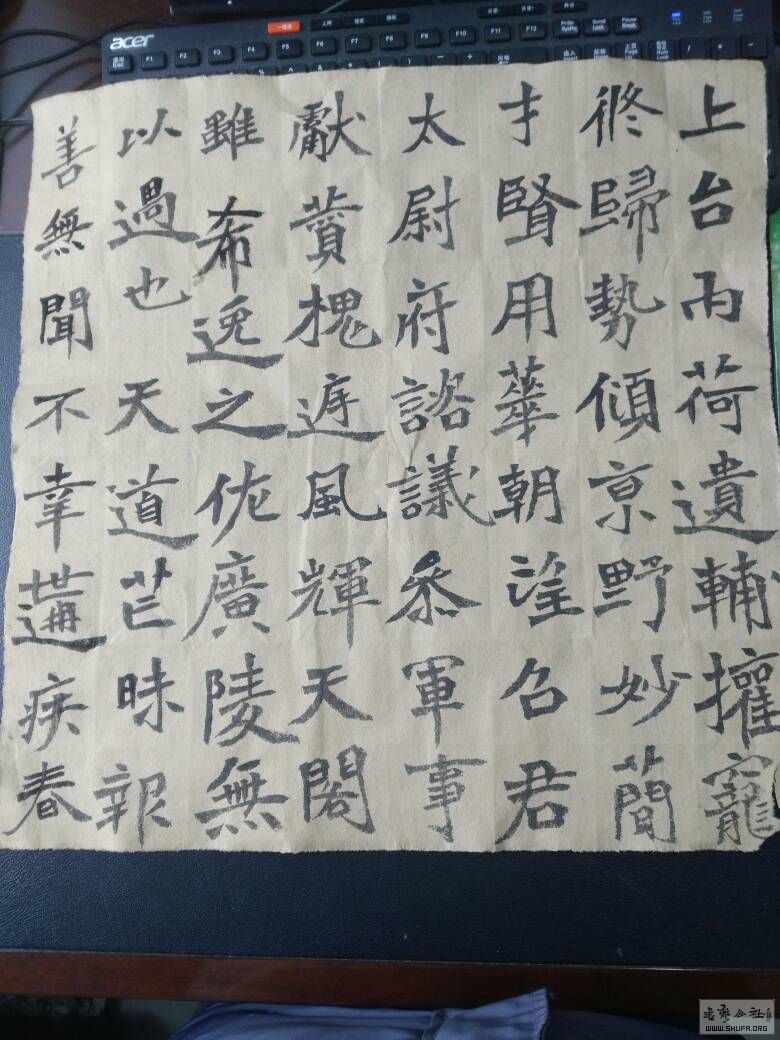 上台雨荷遺輔攉寵
俢歸勢傾京野妙蕳
才賢用華朝望召君
太尉府諮議叅軍事
獻賛槐遅風輝天閣
雖希逸之佐廣陵無
以過也天道芒昧報
善無聞不幸遘疾春
acer
WWW.SHUFA.ORG